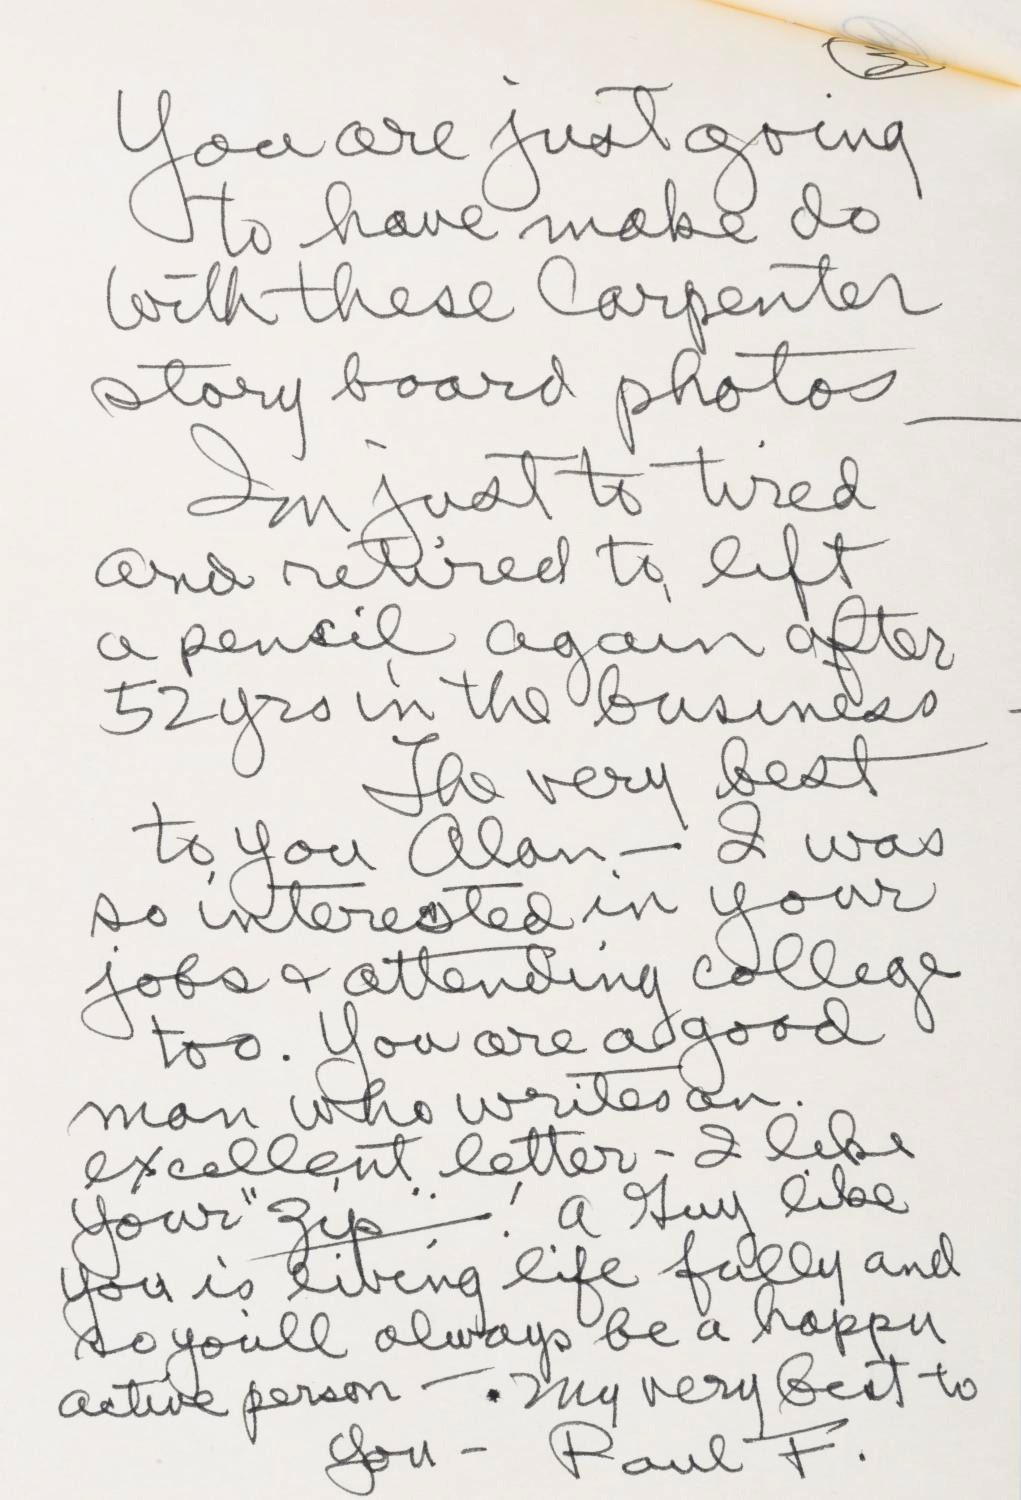 3
You are just going
to have make do
with these Carpenter
story board photos —
Im just to tired
and retired to lift
a pencil again after
52 yrs in the business -
The very best
to you Alan — I was
so interested in your
jobs & attending college
too. You are a good
man who writes an
excellent letter - I like
your "Zip"! A Guy like
you is living life fully and
so you'll always be a happy
active person —. My very best to
you - Paul F.